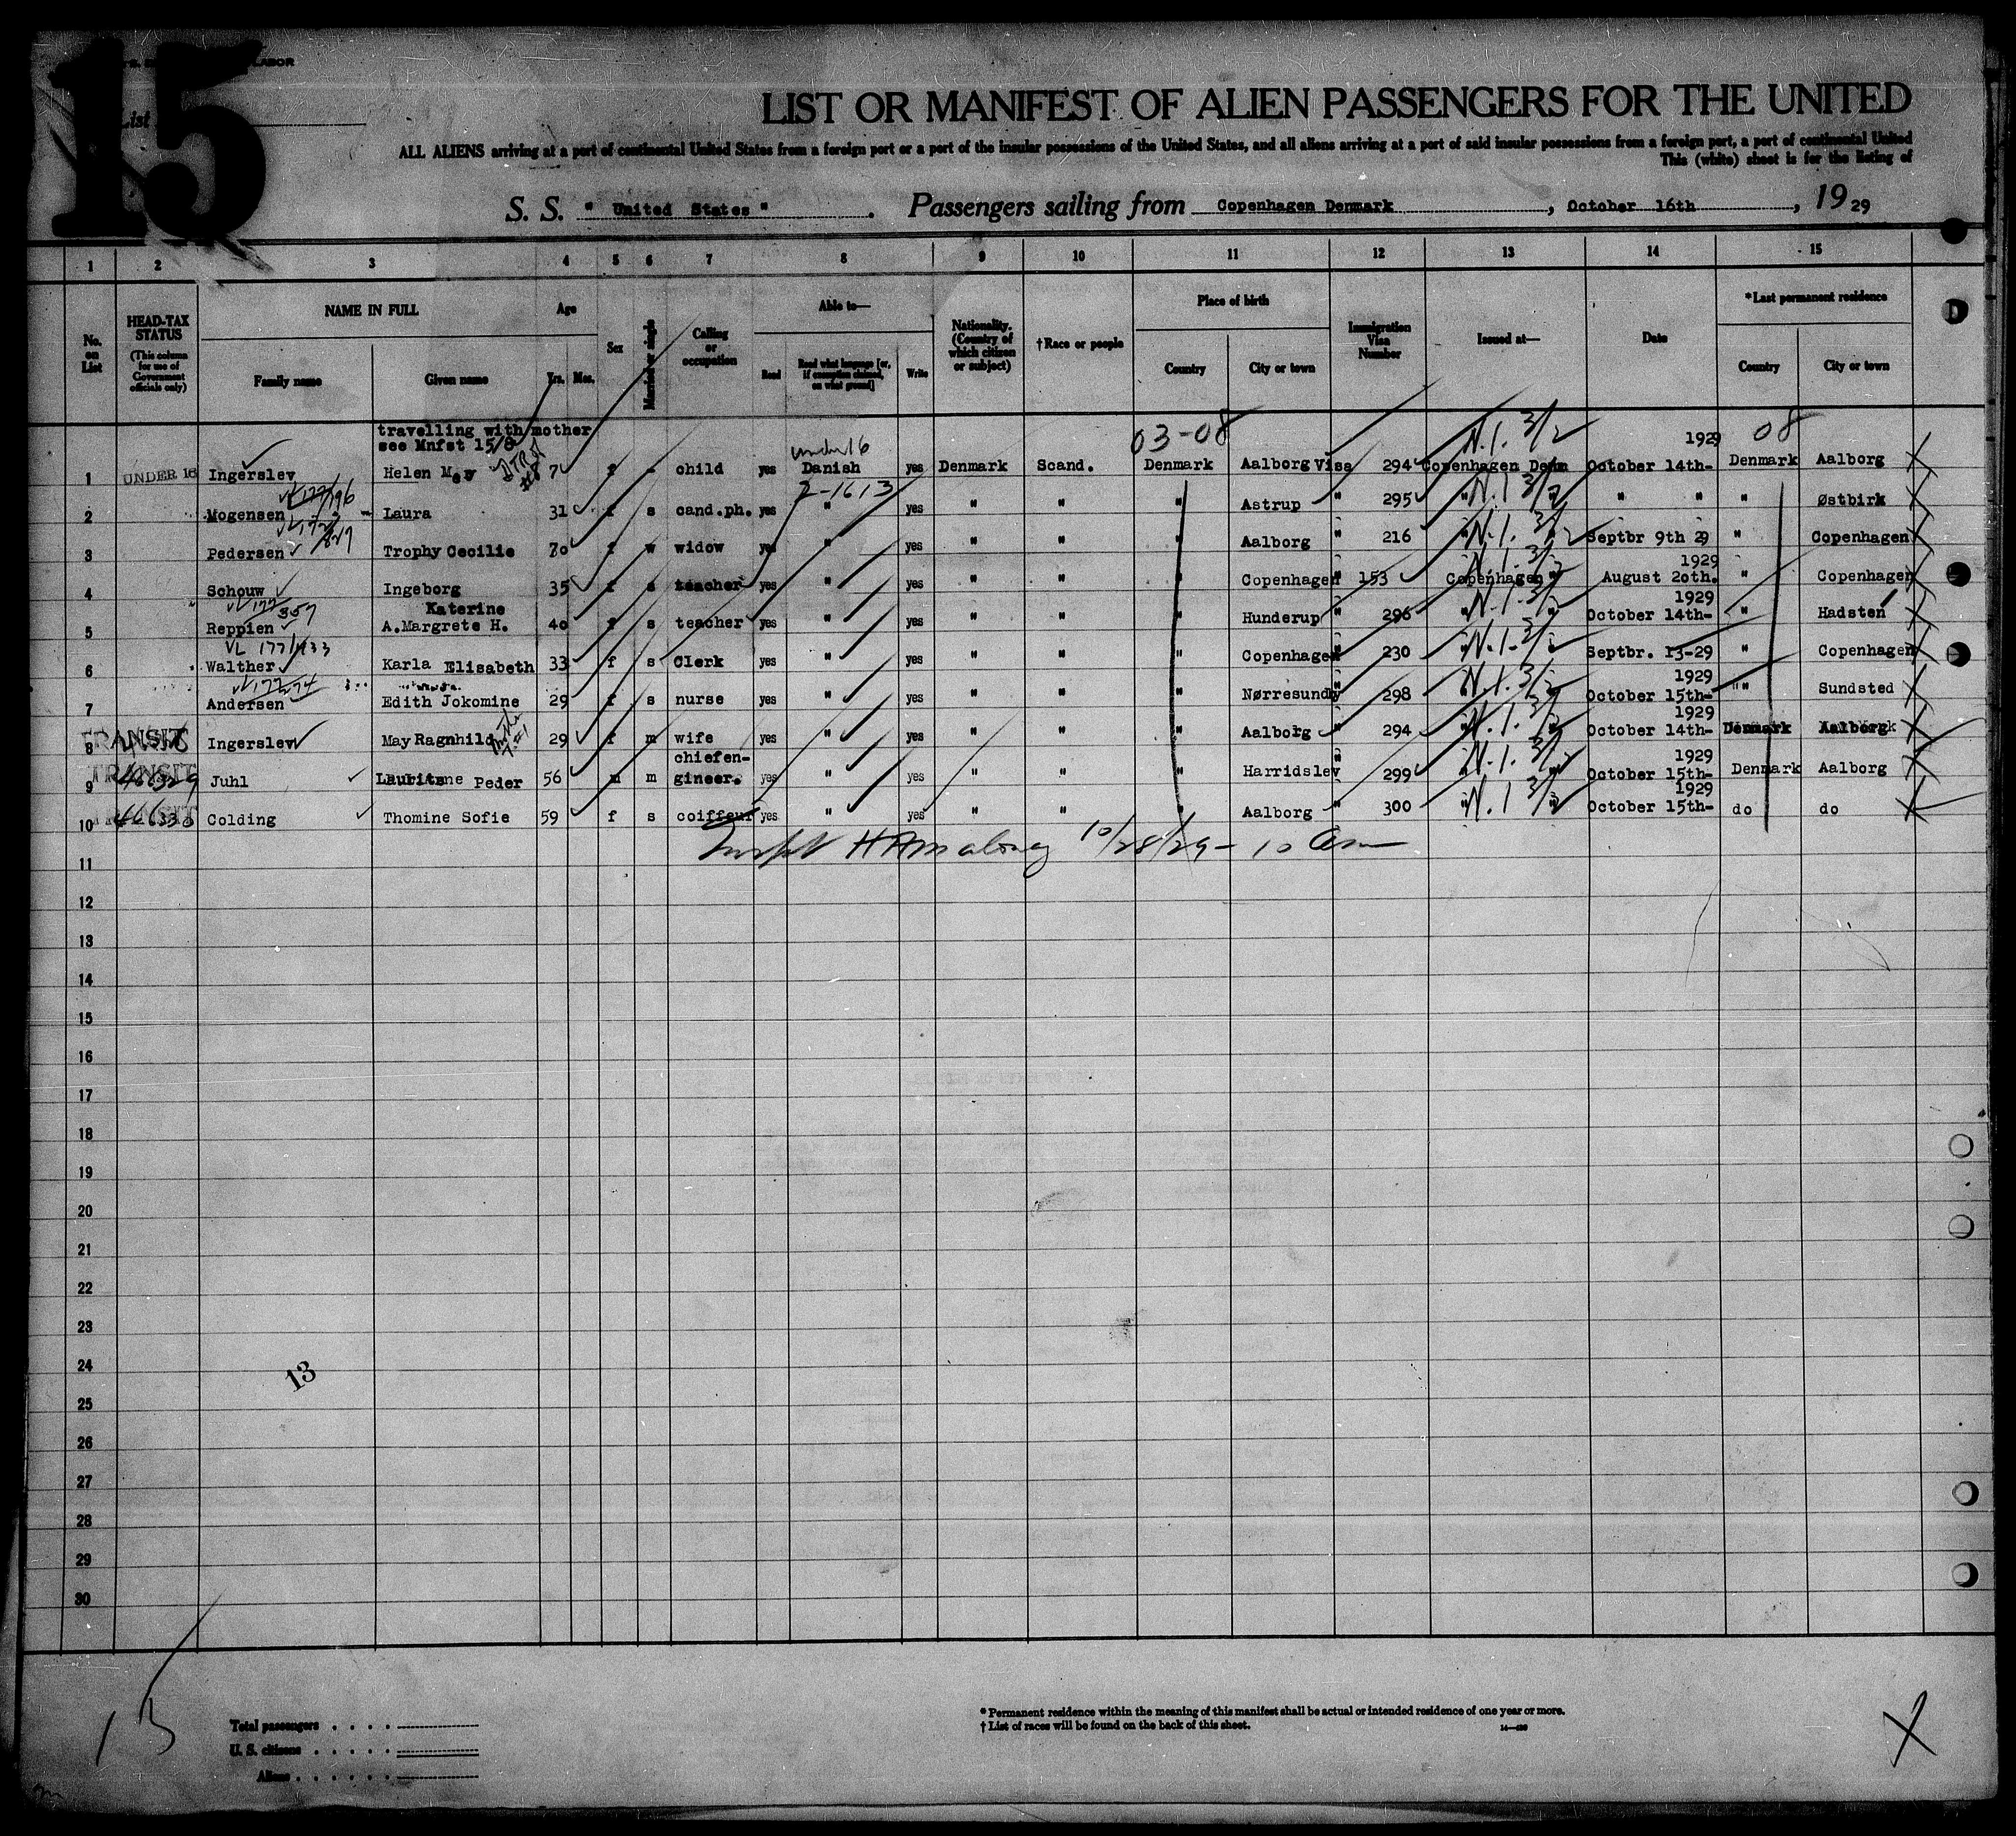 15
LABOR
List
LIST OR MANIFEST OF ALIEN PASSENGERS FOR THE UNITED
ALL ALIENS arriving at a port of continental United States from a foreign port or a port of the insular possessions of the United States, and all aliens arriving at a port of said insular possessions from a foreign port, a port of continental United
This (white) sheet is for the listing of
S. S. "United States". Passengers sailing from Copenhagen Denmark, October 16th, 1929
1 2 3 4 5 6 7 8 9 10 11 12 13 14 15
No. on List
HEAD-TAX STATUS (This column for use of Government officials only)
NAME IN FULL
Family name
Given name
Age
Yrs. Mos.
Sex
Married or single
Calling or occupation
Able to—
Read
Read what language [or, if exemption claimed, on what ground]
Write
Nationality. (Country of which citizen or subject)
†Race or people
Place of birth
Country
City or town
Immigration Visa Number
Issued at—
Date
*Last permanent residence
Country
City or town
travelling with mother
see Mnfst 15/8
under 16
03-08
N.I. 3/2
1929
08
1 UNDER 16 Ingerslev Helen May 7 f - child yes Danish yes Denmark Scand. Denmark Aalborg Visa 294 Copenhagen Denm October 14th- Denmark Aalborg
VL 177/196
2-1613
2 Mogensen Laura 31 f s cand.ph. yes " yes " " " Astrup " 295 " N.I. 3/2 " " " " Østbirk
3 Pedersen Trophy Cecilie 70 f w widow yes " yes " " " Aalborg " 216 " N.I. 3/2 Septbr 9th 29 " Copenhagen
1929
4 Schouw Ingeborg 35 f s teacher yes " yes " " " Copenhagen " 153 Copenhagen August 20th. " Copenhagen
VL 177/357 Katerine 1929
5 Reppien A.Margrete H. 40 f s teacher yes " yes " " " Hunderup " 296 " N.I. 3/2 " October 14th- " Hadsten
VL 177/133
6 Walther Karla Elisabeth 33 f s Clerk yes " yes " " " Copenhagen " 230 " N.I. 3/2 " Septbr. 13-29 " Copenhagen
1929
7 Andersen Edith Jokomine 29 f s nurse yes " yes " " " Nørresundby " 298 " N.I. 3/2 October 15th- " Sundsted
1929
8 TRANSIT Ingerslev May Ragnhild 29 f m wife yes " yes " " " Aalborg " 294 " N.I. 3/2 October 14th- Denmark Aalborg
chiefen- 1929
9 TRANSIT Juhl Peder 56 m m gineer. yes " yes " " " Harridslev " 299 " N.I. 3/2 October 15th- Denmark Aalborg
1929
10 TRANSIT Colding Thomine Sofie 59 f s coiffeur yes " yes " " " Aalborg " 300 " N.I. 3/2 October 15th- do do
10/28/29 - 10 am
11
12
13
14
15
16
17
18
19
20
21
22
23
24
13
25
26
27
28
29
30
13
Total passengers
U. S. citizens
Aliens
* Permanent residence within the meaning of this manifest shall be actual or intended residence of one year or more.
† List of races will be found on the back of this sheet.
X